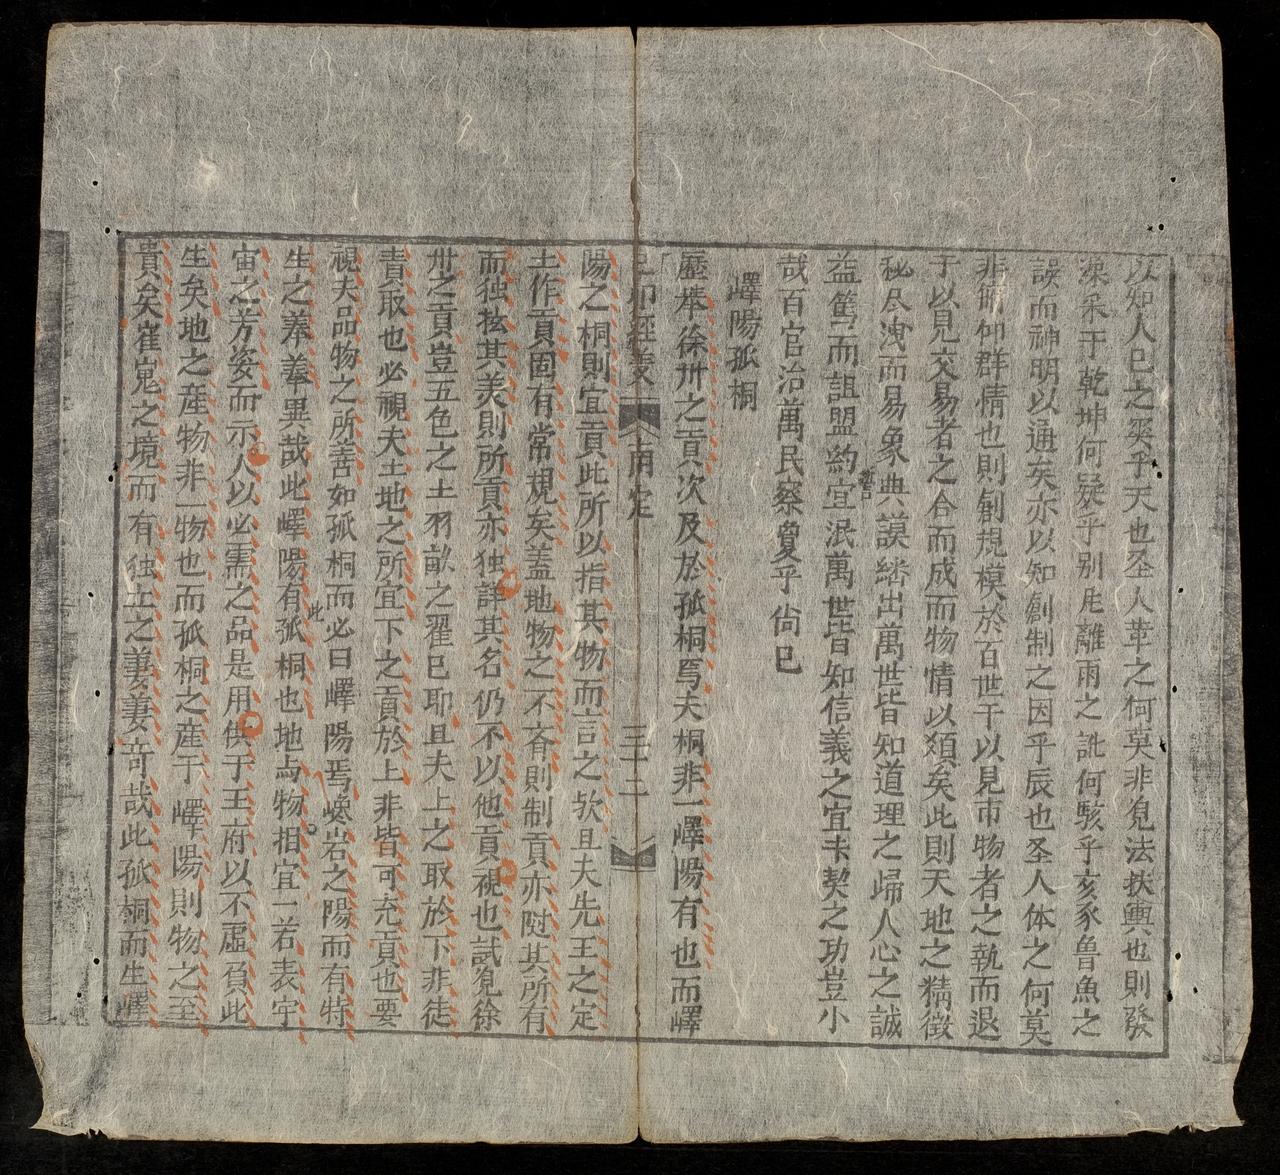 以知人已之奚乎天也圣人聿之何莫非覓法扶輿也則發
凜采于乾坤何疑乎别凥離雨之訛何駭乎亥豕魯魚之
誤而神明以通矣亦以知創制之因乎辰也圣人体之何莫
非俯仰群情也則創規模於百世干以見市物者之執而退
于以見交易者之合而成而物情以類矣此則天地之精徴
秘尽洩而易象典謨繙出萬世皆知道理之歸人心之誠
益篤而詛盟約宜泯萬世皆知信義之宜末契之功豈小
哉百官治萬民察夐乎尚已
嶧陽孤桐
歷举徐州之貢次及於孤桐焉夫桐非一嶧陽有也而嶧
己卯經義 甫定 三十二
陽之桐則宜貢此所以指其物而言之欤且夫先王之定
土作貢固有常規矣盖地物之不斉則制貢亦随其所有
而独挟其美則所貢亦独詳其名仍不以他貢視也試覓徐
州之貢豈五色之土羽畎之翟已耶且夫上之取於下非徒
責取也必視夫土地之所宜下之貢於上非皆可充貢也要
視夫品物之所善如孤桐而必曰嶧陽焉巉岩之陽而有特
生之菶菶異哉此嶧陽有此孤桐也地与物相宜一若表宇
宙之芳姿而示人以必需之品是用供于王府以不虛負此
生矣地之産物非一物也而孤桐之産于嶧陽則物之至
貴矣崔嵬之境而有独立之萋萋竒哉此孤桐而生嶧